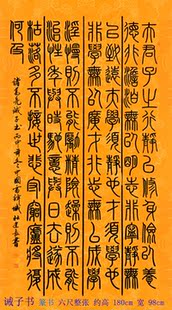 夫君子之行靜以修身儉以養
德非澹泊無以明志非寧靜無
以致遠夫學須靜也才須學也
非學無以廣才非志無以成學
淫慢則不能勵精險躁則不能
治性年與時馳意與日去遂成
枯落多不接世悲守窮廬將復
何及
諸葛亮誡子書
诫子书 篆书 六尺整张 约高 180cm 宽 98cm